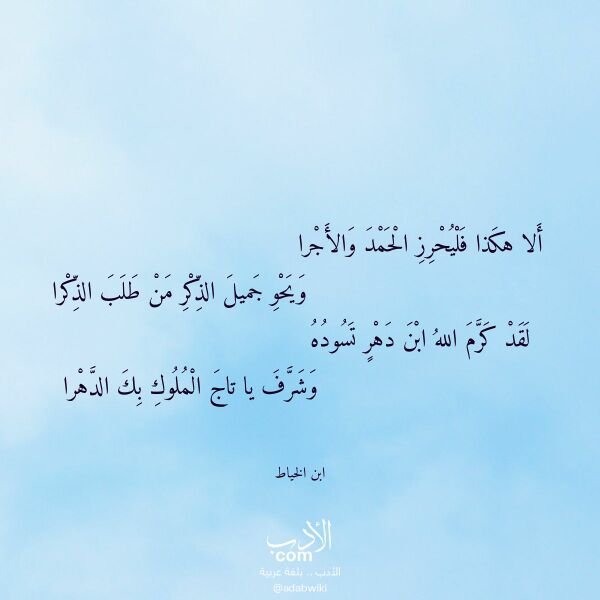 أَلا هكَذا فَلْيُحْرِزِ الْحَمْدَ وَالأَجْرا
وَيَحْوِ جَميلَ الذِّكْرِ مَنْ طَلَبَ الذِّكْرا
لَقَدْ كَرَّمَ اللهُ ابْنَ دَهْرٍ تَسُودُهُ
وَشَرَّفَ يا تاجَ الْمُلُوكِ بِكَ الدَّهْرا
ابن الخياط
الأدب
com
الأدب .. بلغة عربية
@adabwiki